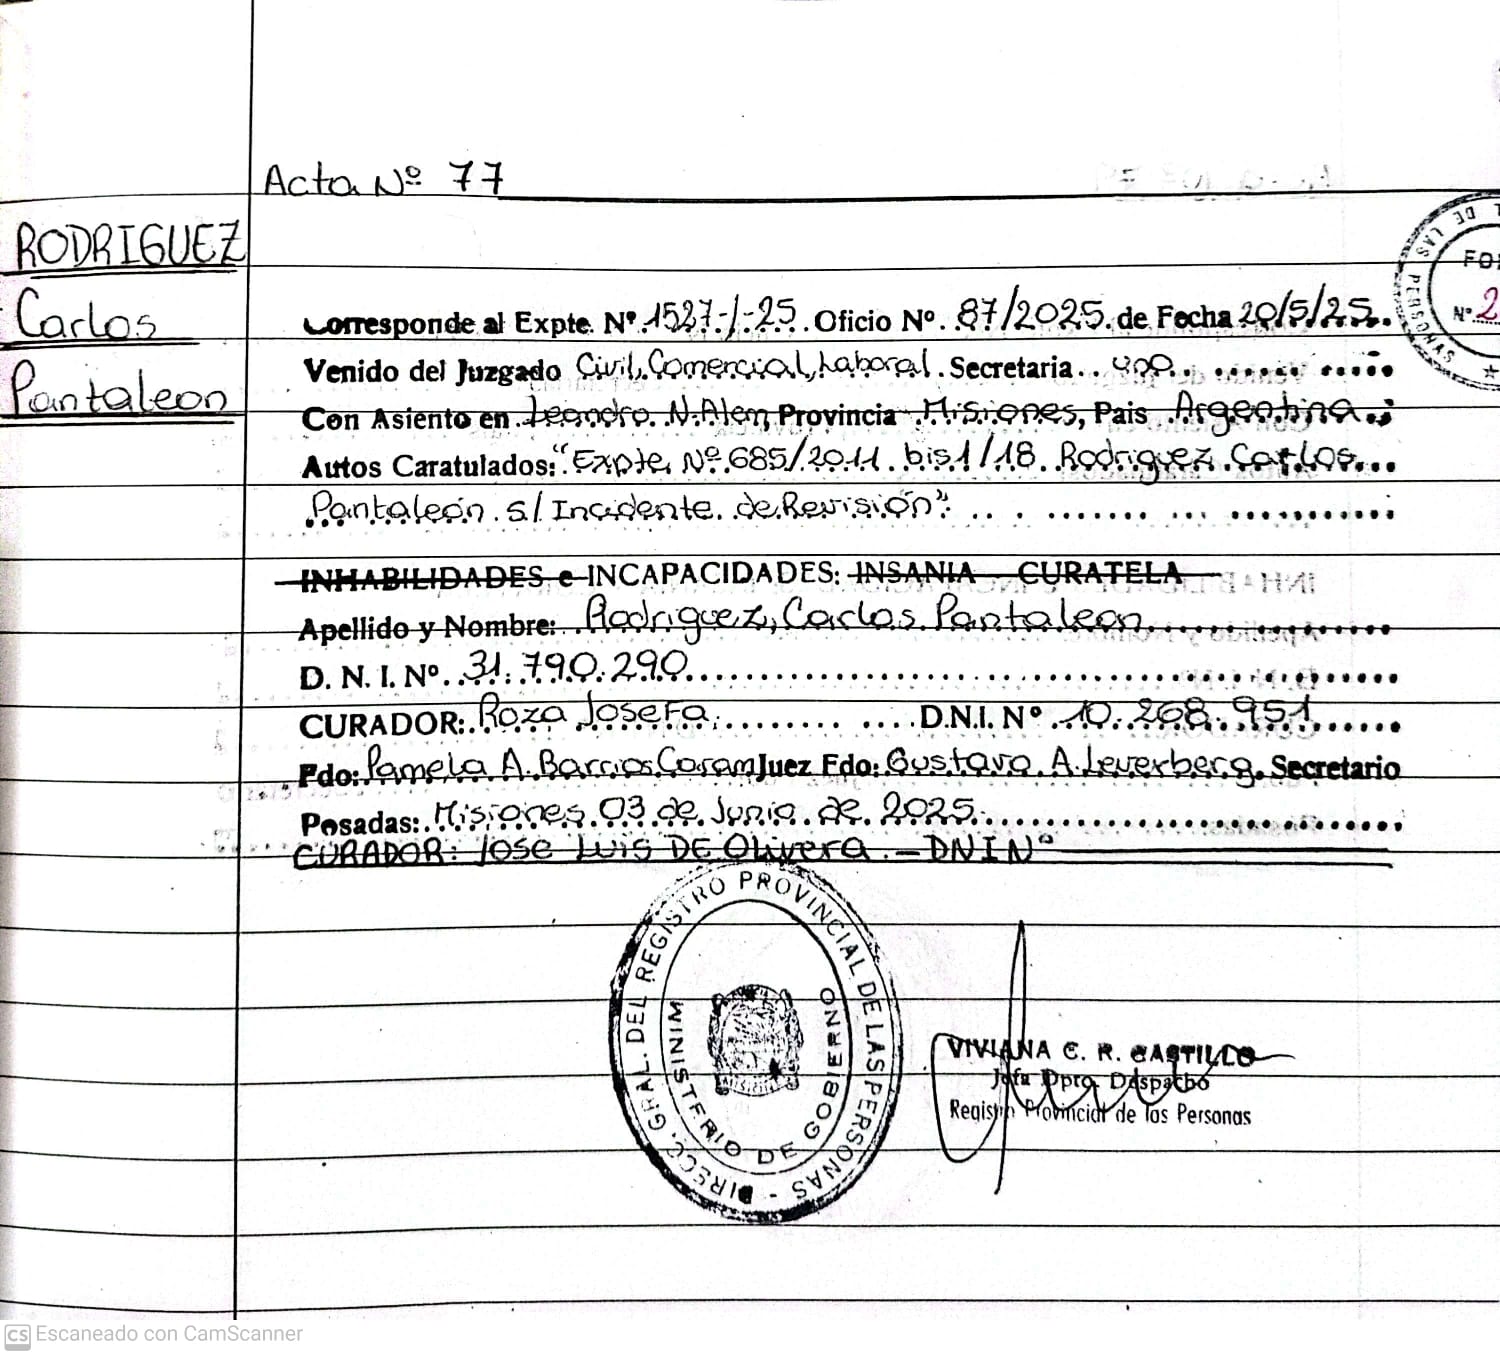 Acta Nº 77
RODRIGUEZ
Carlos
Pantaleon
Corresponde al Expte. Nº 1527-/-25. Oficio Nº. 87/2025. de Fecha 20/5/25.
Venido del Juzgado Civil, Comercial, Laboral. Secretaria..
Con Asiento en Leandro. N. Alem, Provincia Misiones, Pais Argentina.
Autos Caratulados: "Expte. Nº. 685/2011. bis1/18. Rodriguez. Carlos...
Pantaleón. s/ Incidente. de Revisión".
INHABILIDADES e INCAPACIDADES: INSANIA CURATELA
Apellido y Nombre: Rodriguez, Carlos. Pantaleon.
D. N. I. Nº. 31.790.290
CURADOR: Roza Josefa. D.N.I. Nº 10.268.951
Fdo: Pamela A. Barrios Juez Fdo: Gustavo. A. Leverberg. Secretario
Posadas: Misiones 03 de Junio de 2025.
CURADOR: Jose Luis DE Olivera. - DNI Nº
DIRECC. GRAL. DEL REGISTRO PROVINCIAL DE LAS PERSONAS -
MINISTERIO DE GOBIERNO
VIVIANA C. R. CASTILLO
Jefa Dpto. Despacho
Registro Provincial de las Personas
DE LAS PERSONAS
Nº 2
CS Escaneado con CamScanner